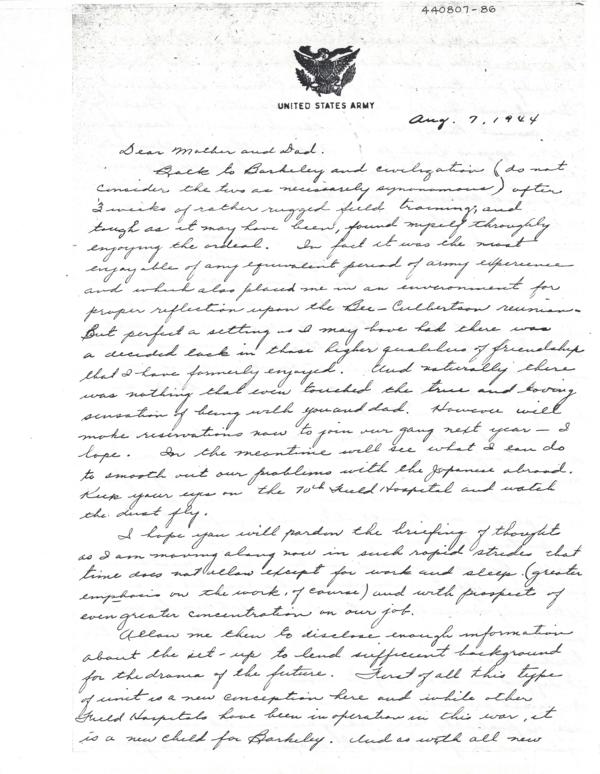 440807-86
UNITED STATES ARMY
Aug. 7, 1944
Dear Mother and Dad.
Back to Barkeley and civilization (do not
consider the two as necessarely synonomous) after
3 weeks of rather rugged field training, and
tough as it may have been, found myself throughly
enjoying the ordeal. In fact it was the most
enjoyable of any equivalent period of army experience
and which also placed me in an environment for
proper reflection upon the Bee-Culbertson reunion.
But perfect a setting as I may have had there was
a decided lack in those higher qualities of friendship
that I have formerly enjoyed. And naturally there
was nothing that even touched the true and loving
sensation of being with you and dad. However will
make reservations now to join our gang next year — I
hope. In the meantime will see what I can do
to smooth out our problems with the Japanese abroad.
Keep your eyes on the 70th Field Hospital and watch
the dust fly.
I hope you will pardon the briefing of thought
as I am moving along now in such rapid strides that
time does not allow except for work and sleep. (greater
emphasis on the work, of course) and with prospect of
even greater concentration on our job.
Allow me then to disclose enough information
about the set-up to lend sufficient background
for the drama of the future. First of all this type
of unit is a new conception here and while other
Field Hospitals have been in operation in this war, it
is a new child for Barkeley. And as with all new